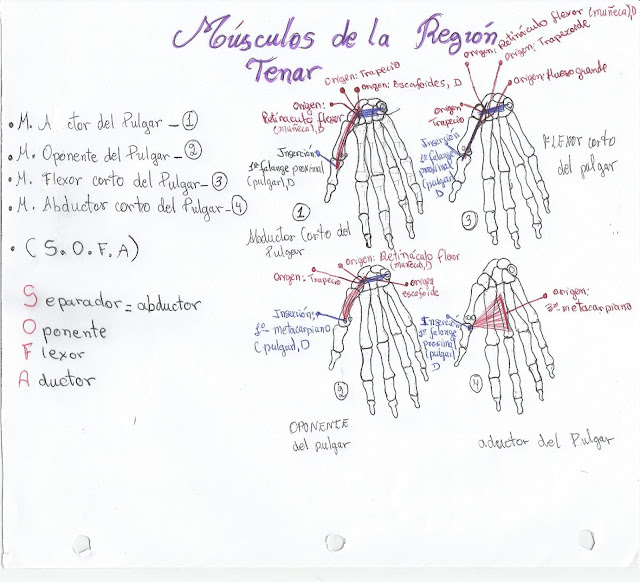 Músculos de la Región
Tenar
• M. A ctor del Pulgar - 1
• M. Oponente del Pulgar - 2
• M. Flexor corto del Pulgar - 3
• M. Abductor corto del Pulgar - 4
• (S.O.F.A)
Separador = abductor
Oponente
Flexor
Aductor
origen: Trapecio
origen: Escafoides, D
origen:
Retináculo flexor
(muñeca), D
Inserción
1ª falange proximal
(pulgar), D
1
Abductor Corto del
Pulgar
origen: Retináculo flexor (muñeca), D
origen: Trapezoide
origen: Hueso grande
origen:
Trapecio
Inserción
1ª falange
proximal
(pulgar)
D
3
FLEXOR corto
del pulgar
origen: Retináculo floor
(muñeca), D
origen: Trapecio
origen
escafoide
Inserción:
1º metacarpiano
(pulgar), D
2
OPONENTE
del pulgar
origen:
3er metacarpiano
Inserción
1ª falange
proximal
(pulgar)
D
4
aductor del Pulgar